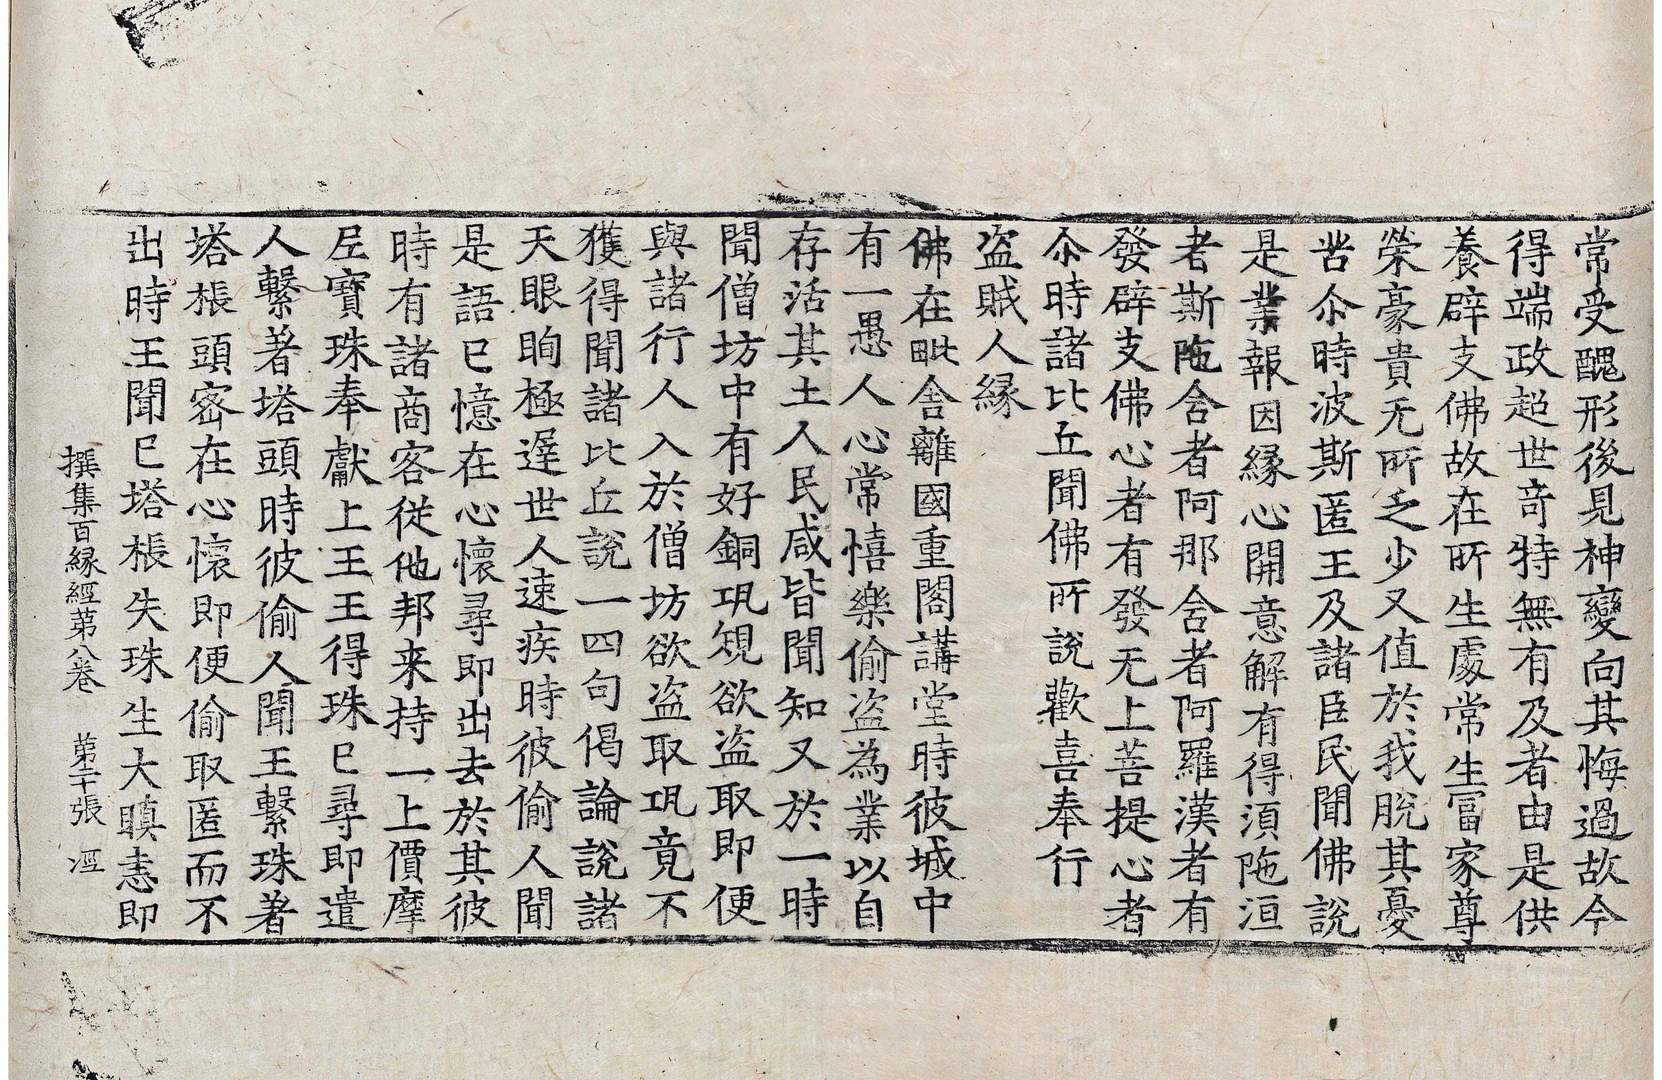 常受醜形後見神變向其悔過故今
得端政超世竒特無有及者由是供
養辟支佛故在所生處常生冨家尊
榮豪貴无所乏少又值於我脫其憂
苦尒時波斯匿王及諸臣民聞佛說
是業報因緣心開意解有得湏陁洹
者斯陁含者阿那含者阿羅漢者有
發辟支佛心者有發无上菩提心者
尒時諸比丘聞佛所說歡喜奉行
盗賊人緣
佛在毗舍離國重閣講堂時彼城中
有一愚人心常憘樂偷盗為業以自
存活其土人民咸皆聞知又於一時
聞僧坊中有好銅瓨規欲盗取即便
與諸行人入於僧坊欲盗取瓨竟不
獲得聞諸比丘說一四句偈論說諸
天眼眴極遟世人速疾時彼偷人聞
是語已憶在心懷尋即出去於其彼
時有諸商客從他邦来持一上價摩
尼寶珠奉獻上王王得珠已尋即遣
人繫著塔頭時彼偷人聞王繫珠著
塔棖頭密在心懷即便偷取匿而不
出時王聞已塔棖失珠生大瞋恚即
撰集百緣經第八卷 第二十張 涇